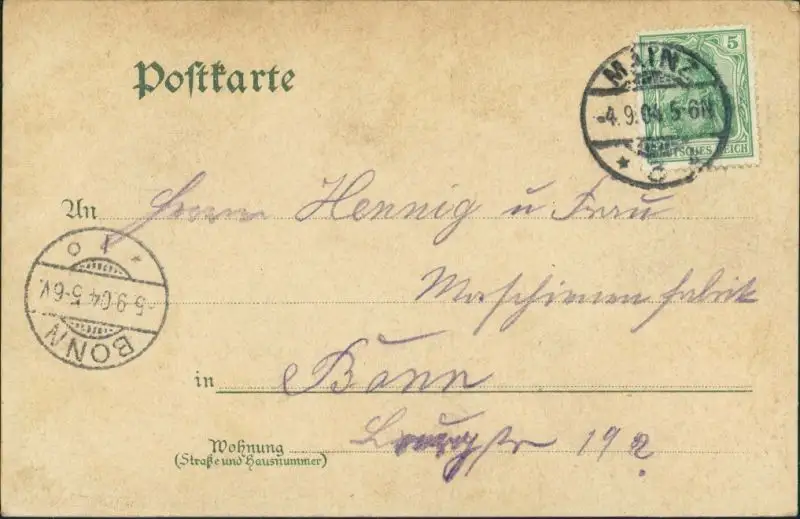 Postkarte
5
DEUTSCHES REICH
MAINZ
-4.9.04 5-6N
* 6 *
An Herrn Hennig u Frau
Maschinenfabrik
BONN
5.9.04 5-6V.
* 1 o
in Bonn
Wohnung
(Straße und Hausnummer)
192